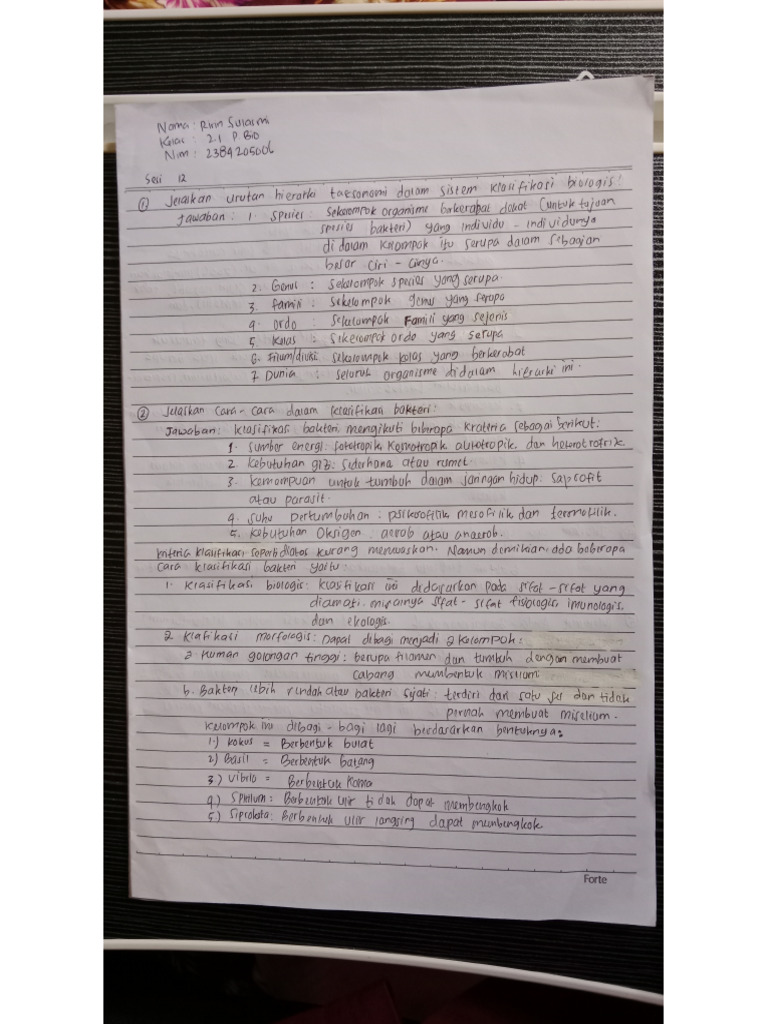 Nama : Ririn Sulasmi
Kelas : 2.1 P BIO
Nim : 2384205006
Sesi 12
① Jelaskan urutan hierarki taksonomi dalam sistem klasifikasi biologis!
Jawaban : 1. Spesies : Sekelompok organisme berkerabat dekat (untuk tujuan
spesies bakteri) yang individu - individunya
didalam kelompok itu serupa dalam sebagian
besar ciri - cirinya.
2. Genus : Sekelompok spesies yang serupa.
3. Famili : Sekelompok genus yang serupa
4. Ordo : Sekelompok Famili yang sejenis
5. Kelas : Sekelompok ordo yang serupa
6. Filum/divisi : Sekelompok kelas yang berkerabat
7. Dunia : Seluruh organisme didalam hierarki ini.
② Jelaskan Cara - Cara dalam klasifikasi bakteri!
Jawaban : Klasifikasi bakteri mengikuti beberapa krateria sebagai berikut:
1. Sumber energi : fototropik, kemotropik, autotropik dan heterotrofik.
2. Kebutuhan gizi : Sederhana atau rumit.
3. Kemampuan untuk tumbuh dalam jaringan hidup : saprofit
atau parasit.
4. Suhu pertumbuhan : psikrofilik mesofilik dan termofilik.
5. Kebutuhan Oksigen : aerob atau anaerob.
Kriteria klasifikasi seperti diatas kurang memuaskan. Namun demikian, ada beberapa
cara klasifikasi bakteri yaitu :
1. Klasifikasi biologis : klasifikasi ini didasarkan pada sifat - sifat yang
diamati. misalnya sifat - sifat fisiologis, imunologis,
dan ekologis.
2. Klafikasi morfologis : Dapat dibagi menjadi 2 kelompok :
a. Kuman golongan tinggi : berupa filamen dan tumbuh dengan membuat
cabang membentuk miselium.
b. Bakteri lebih rendah atau bakteri sejati : terdiri dari satu sel dan tidak
pernah membuat miselium.
Kelompok ini dibagi - bagi lagi berdasarkan bentuknya :
1.) Kokus = Berbentuk bulat
2) Basil = Berbentuk batang
3.) Vibrio = Berbentuk koma
4.) Spirilum : Berbentuk ulir tidak dapat membengkok
5) Siprokata : Berbentuk ulir langsing dapat membengkok
Forte